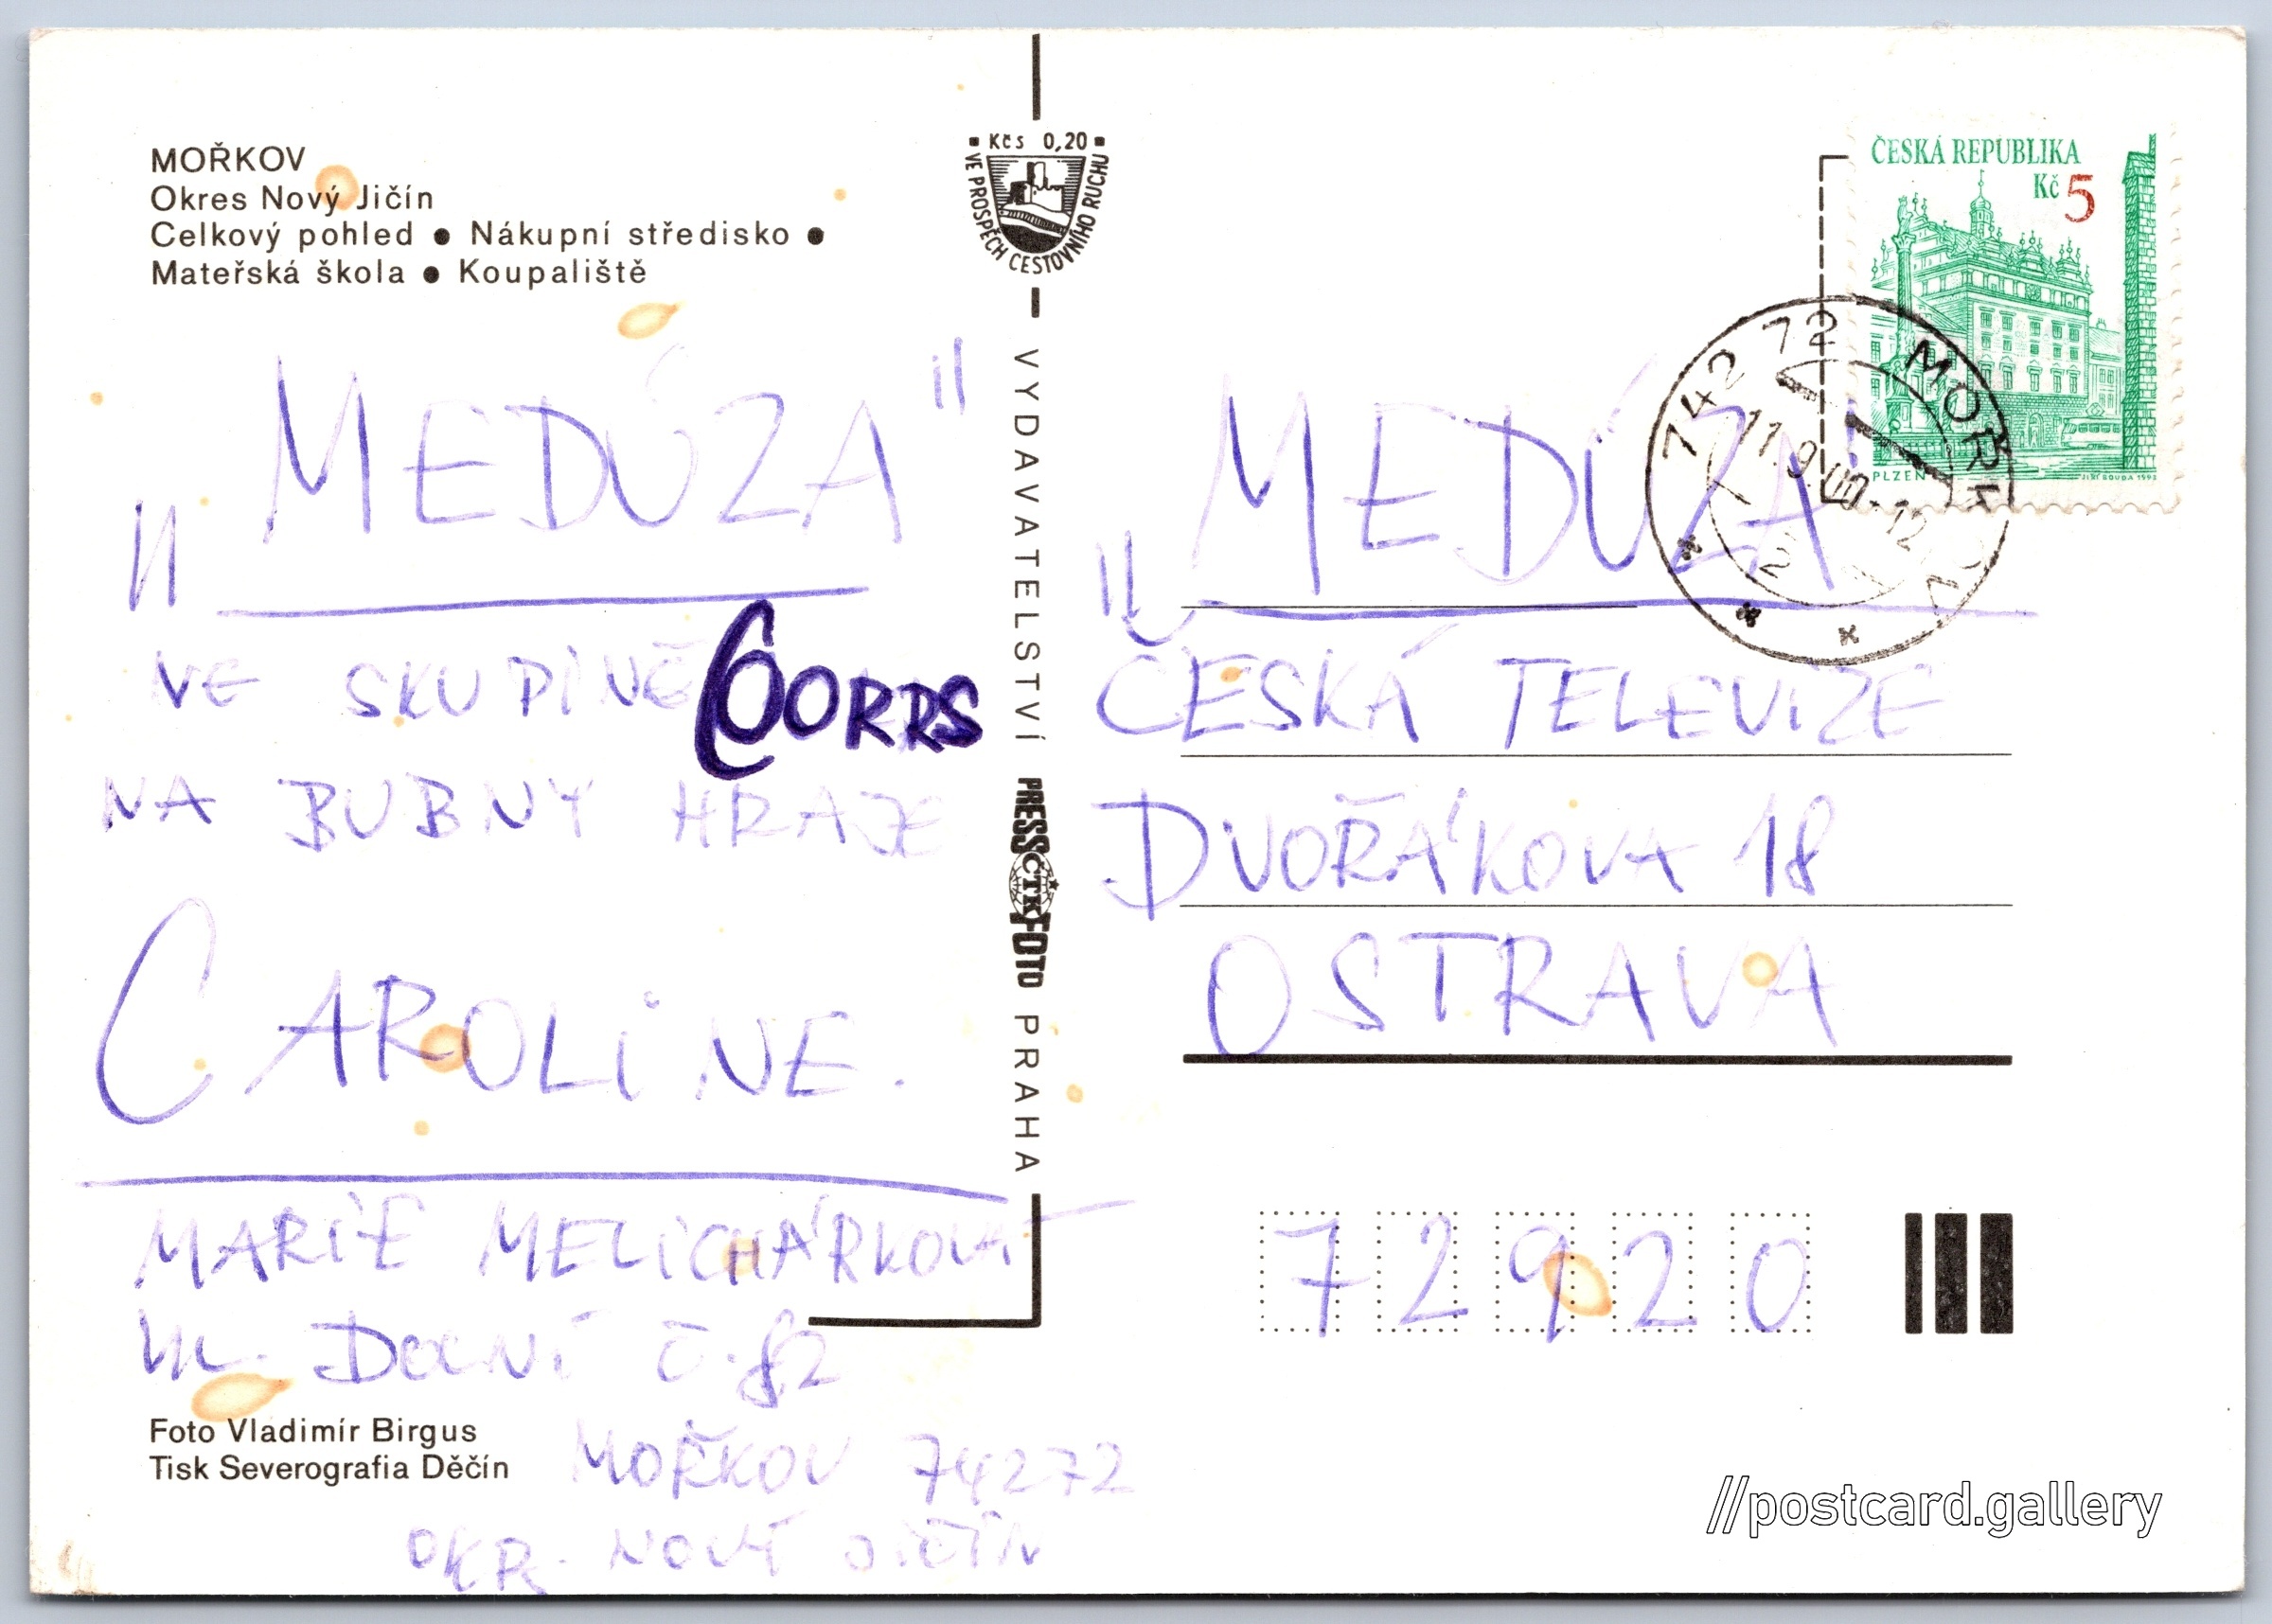 MOŘKOV
Okres Nový Jičín
Celkový pohled ● Nákupní středisko ●
Mateřská škola ● Koupaliště
"MEDÚZA"
VE SKUPINĚ CORRS
NA BUBNY HRAJE
CAROLINE.
MARIE MELICHÁRKOVÁ
UL. DOLNÍ Č. 82
MOŘKOV 74272
OKR. NOVÝ JIČÍN
Foto Vladimír Birgus
Tisk Severografia Děčín
Kčs 0,20
VE PROSPĚCH CESTOVNÍHO RUCHU
VYDAVATELSTVÍ PRESSČTKFOTO PRAHA
ČESKÁ REPUBLIKA
Kč 5
PLZEŇ
JIŘÍ BOUDA
742 72 MOŘKOV
11.9.00-12
2
"MEDÚZA"
ČESKÁ TELEVIZE
DVOŘÁKOVA 18
OSTRAVA
72920
//postcard.gallery